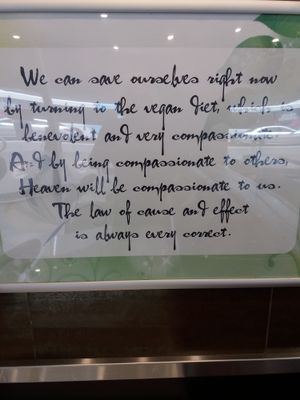 We can save ourselves right now
by turning to the vegan diet, which is
benevolent and very compassionate.
And by being compassionate to others,
Heaven will be compassionate to us.
The law of cause and effect
is always every correct.